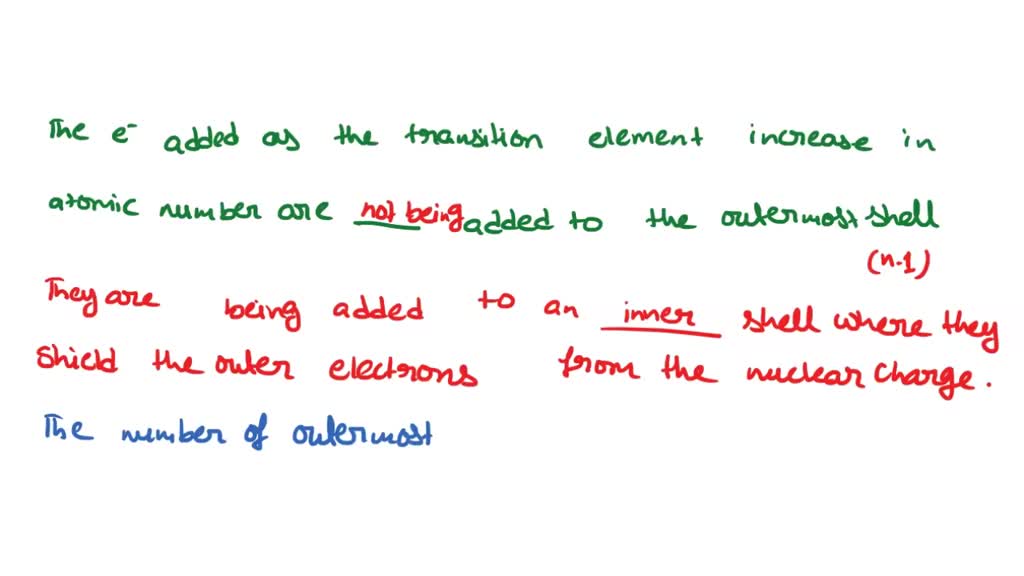 The e⁻ added as the transition element increase in
atomic number are not being added to the outermost shell
(n-1)
They are being added to an inner shell where they
shield the outer electrons from the nuclear charge.
The number of outermost